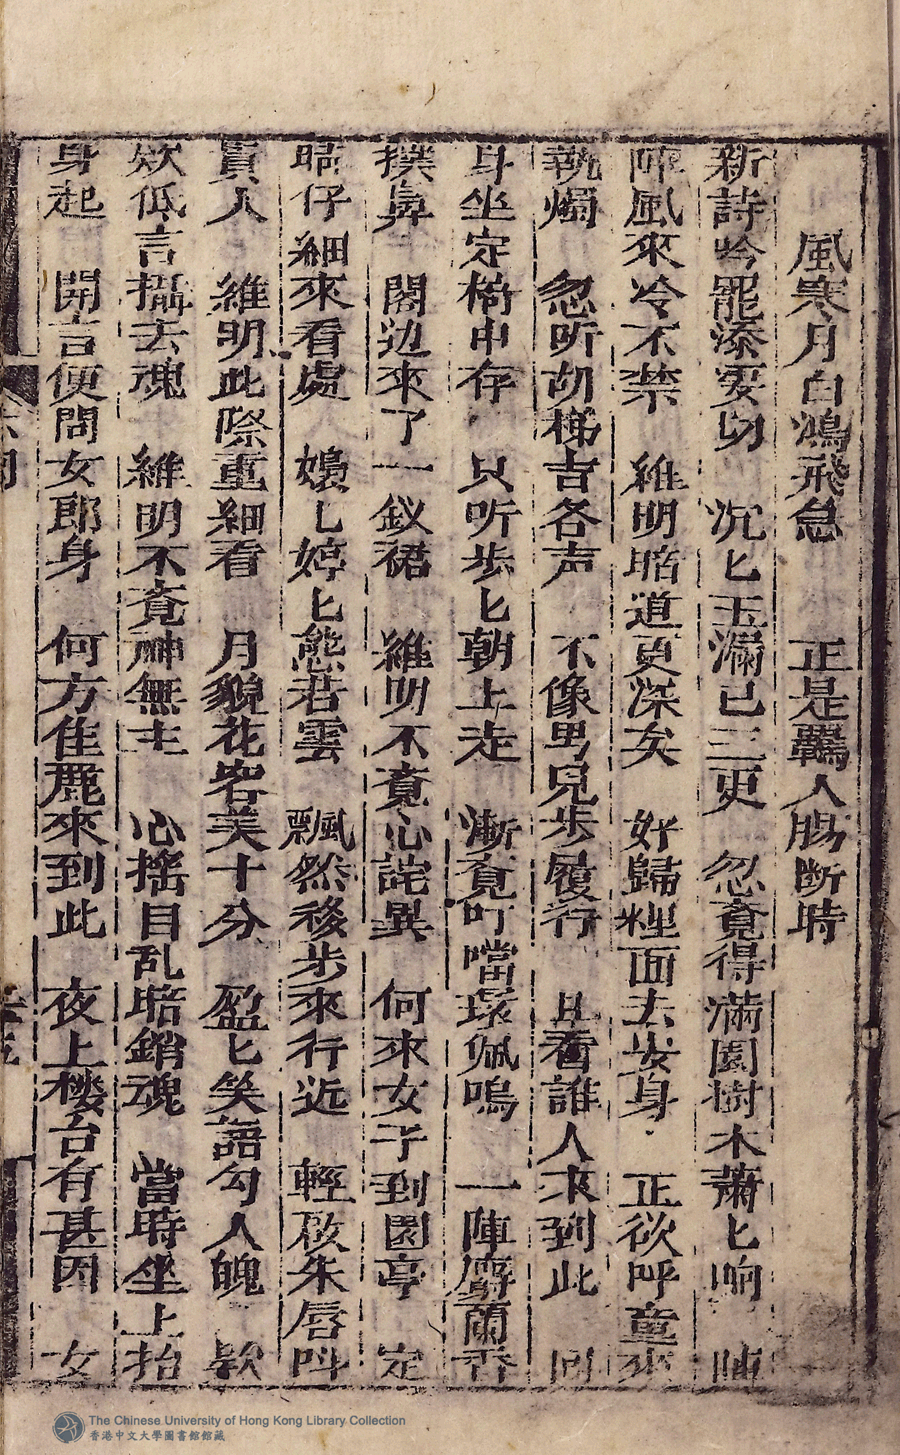 風寒月白鴻飛急　正是羈人腸断時
新詩吟罷添凄切　沉匕玉漏已三更　忽竟得滿園樹木蕭匕响　陣
陣風來冷不禁　維明暗道更深矣　好歸裡面去安身　正欲呼童來
執燭　忽听胡梯吉各声　不像男兒步履行　且看誰人來到此　回
身坐定椅中存　只听步匕朝上走　漸竟叮噹環佩鳴　一陣麝蘭香
撲鼻　閣边來了一釵裙　維明不竟心詫異　何來女子到園亭　定
睛仔細來看處　嬝匕婷匕態若雲　飄然移步來行近　輕啟朱唇呌
貴人　維明此際重細看　月貌花容美十分　盈匕笑語勾人魄　欵
欵低言攝去魂　維明不竟神無主　心搖目乱暗銷魂　當時坐上抬
身起　開言便問女郎身　何方佳麗來到此　夜上楼台有甚因　女
The Chinese University of Hong Kong Library Collection
香港中文大學圖書館館藏